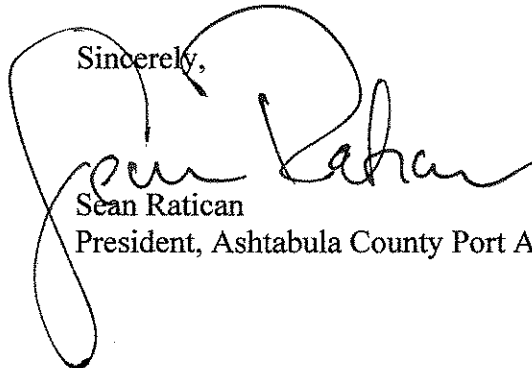 Sincerely,
Sean Ratican
Sean Ratican
President, Ashtabula County Port A